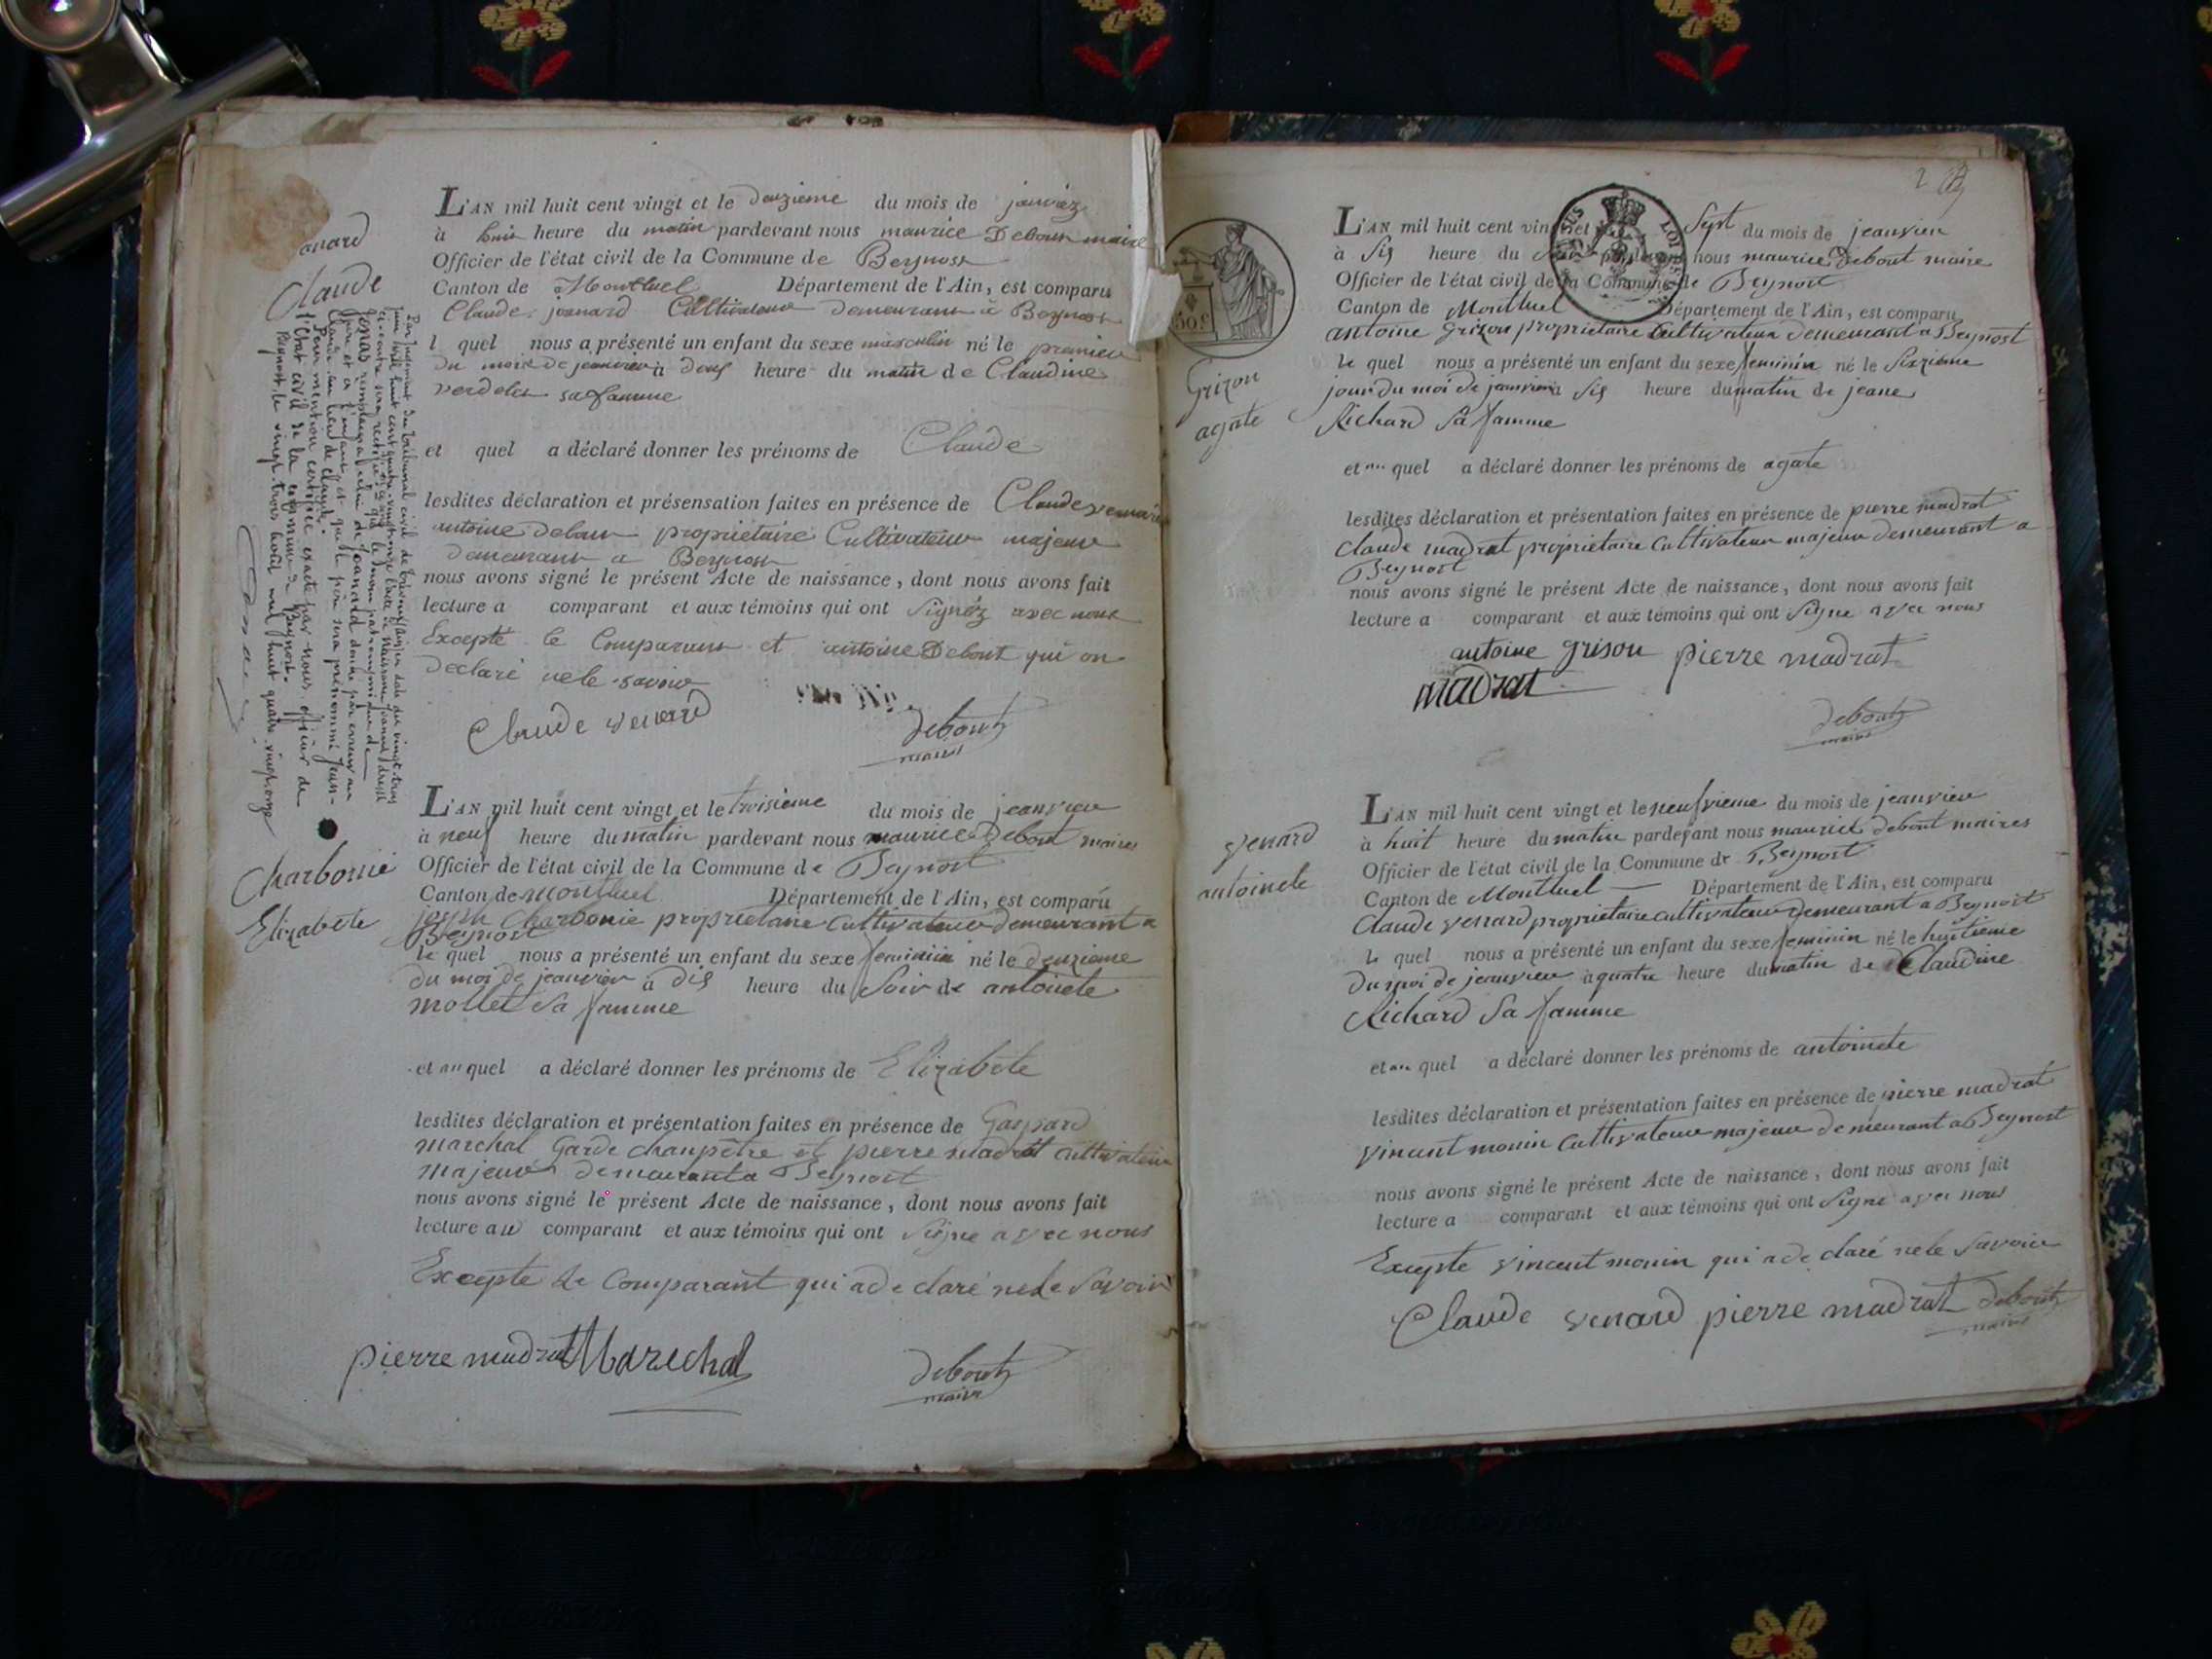 anard
Claude
L'AN mil huit cent vingt et le deuzieme du mois de janviez
à huit heure du matin pardevant nous maurice Debout maire
Officier de l'état civil de la Commune de Beynost
Canton de Montluel Département de l'Ain, est comparu
Claude joanard Cultivateur demeurant à Beynost
l quel nous a présenté un enfant du sexe masculin né le premier
du mois de jeanvier à deux heure du matin de Claudine
verdelet sa famme
et quel a déclaré donner les prénoms de Claude
lesdites déclaration et présensation faites en présence de Claude venard
antoine debout propriétaire Cultivateur majeur
demeurant a Beynost
nous avons signé le présent Acte de naissance, dont nous avons fait
lecture a comparant et aux témoins qui ont signéz avec nous
Excepté le Comparant et antoine Debout qui on
declaré ne le savoir
Claude venard debout
maire
Par jugement du tribunal civil de Trévoux (Ain) en date du vingt-trois
juin mil huit cent quatre-vingt-onze l'acte de naissance Joanard dressé
ci-contre sera rectifié en ce que le nom patronymique de
Jonas remplacera celui de Joanard donné par erreur au
père et à l'enfant et que le père sera prénommé Jean-
Claude au lieu de Claude.
Pour mention certifiée exacte par nous officier de
l'Etat civil de la commune de Beynost.
Beynost le vingt-trois août mil huit quatre-vingt-onze
Charbonié
Elizabete
L'AN mil huit cent vingt et le troisieme du mois de jeanvier
à neuf heure du matin pardevant nous maurice Debout maires
Officier de l'état civil de la Commune de Beynost
Canton de montluel Département de l'Ain, est comparu
joseph Charbonie propriétaire Cultivateur demeurant a
Beynost
le quel nous a présenté un enfant du sexe feminin né le deuzieme
du moi de jeanvier à dis heure du Soir de antoinete
mollet Sa famme
et au quel a déclaré donner les prénoms de Elizabete
lesdites déclaration et présentation faites en présence de Gaspard
marchal Garde chanpêtre et pierre madrat Cultivateur
majeur demeurant a Beynost
nous avons signé le présent Acte de naissance, dont nous avons fait
lecture au comparant et aux témoins qui ont signe avec nous
Excepte Le Comparant qui a de claré ne le Savoir
pierre madrat Marechal debout
maire
2
50 c
Grizon
agate
L'AN mil huit cent vingt et Sept du mois de jeanvier
à Sis heure du pardevant nous maurice debout maire
Officier de l'état civil de la Commune de Beynost
Canton de Montluel Département de l'Ain, est comparu
antoine Grizon propriétaire Cultivateur demeurant a Beynost
le quel nous a présenté un enfant du sexe feminin né le Sixzieme
jour du moi de janvier à Sis heure du matin de jeane
Richard Sa famme
et au quel a déclaré donner les prénoms de agate
lesdites déclaration et présentation faites en présence de pierre madrat
Claude madrat propriétaire Cultivateur majeur demeurant a
Beynost
nous avons signé le présent Acte de naissance, dont nous avons fait
lecture a comparant et aux témoins qui ont Signe avec nous
antoine grison pierre madrat
madrat
debout
maire
venard
antoinete
L'AN mil huit cent vingt et le neufvieme du mois de jeanvier
à huit heure du matin pardevant nous maurice debout maires
Officier de l'état civil de la Commune de Beynost
Canton de Montluel Département de l'Ain, est comparu
Claude venard propriétaire cultivateur demeurant a Beynost
le quel nous a présenté un enfant du sexe feminin né le huitieme
du moi de jeanvier à quatre heure du matin de Claudine
Richard Sa famme
et au quel a déclaré donner les prénoms de antoinete
lesdites déclaration et présentation faites en présence de pierre madrat
vincent monin Cultivateur majeur demeurant a Beynost
nous avons signé le présent Acte de naissance, dont nous avons fait
lecture a comparant et aux témoins qui ont Signe avec nous
Excepte vincent monin qui a de claré ne le Savoir
Claude venard pierre madrat debout
maire